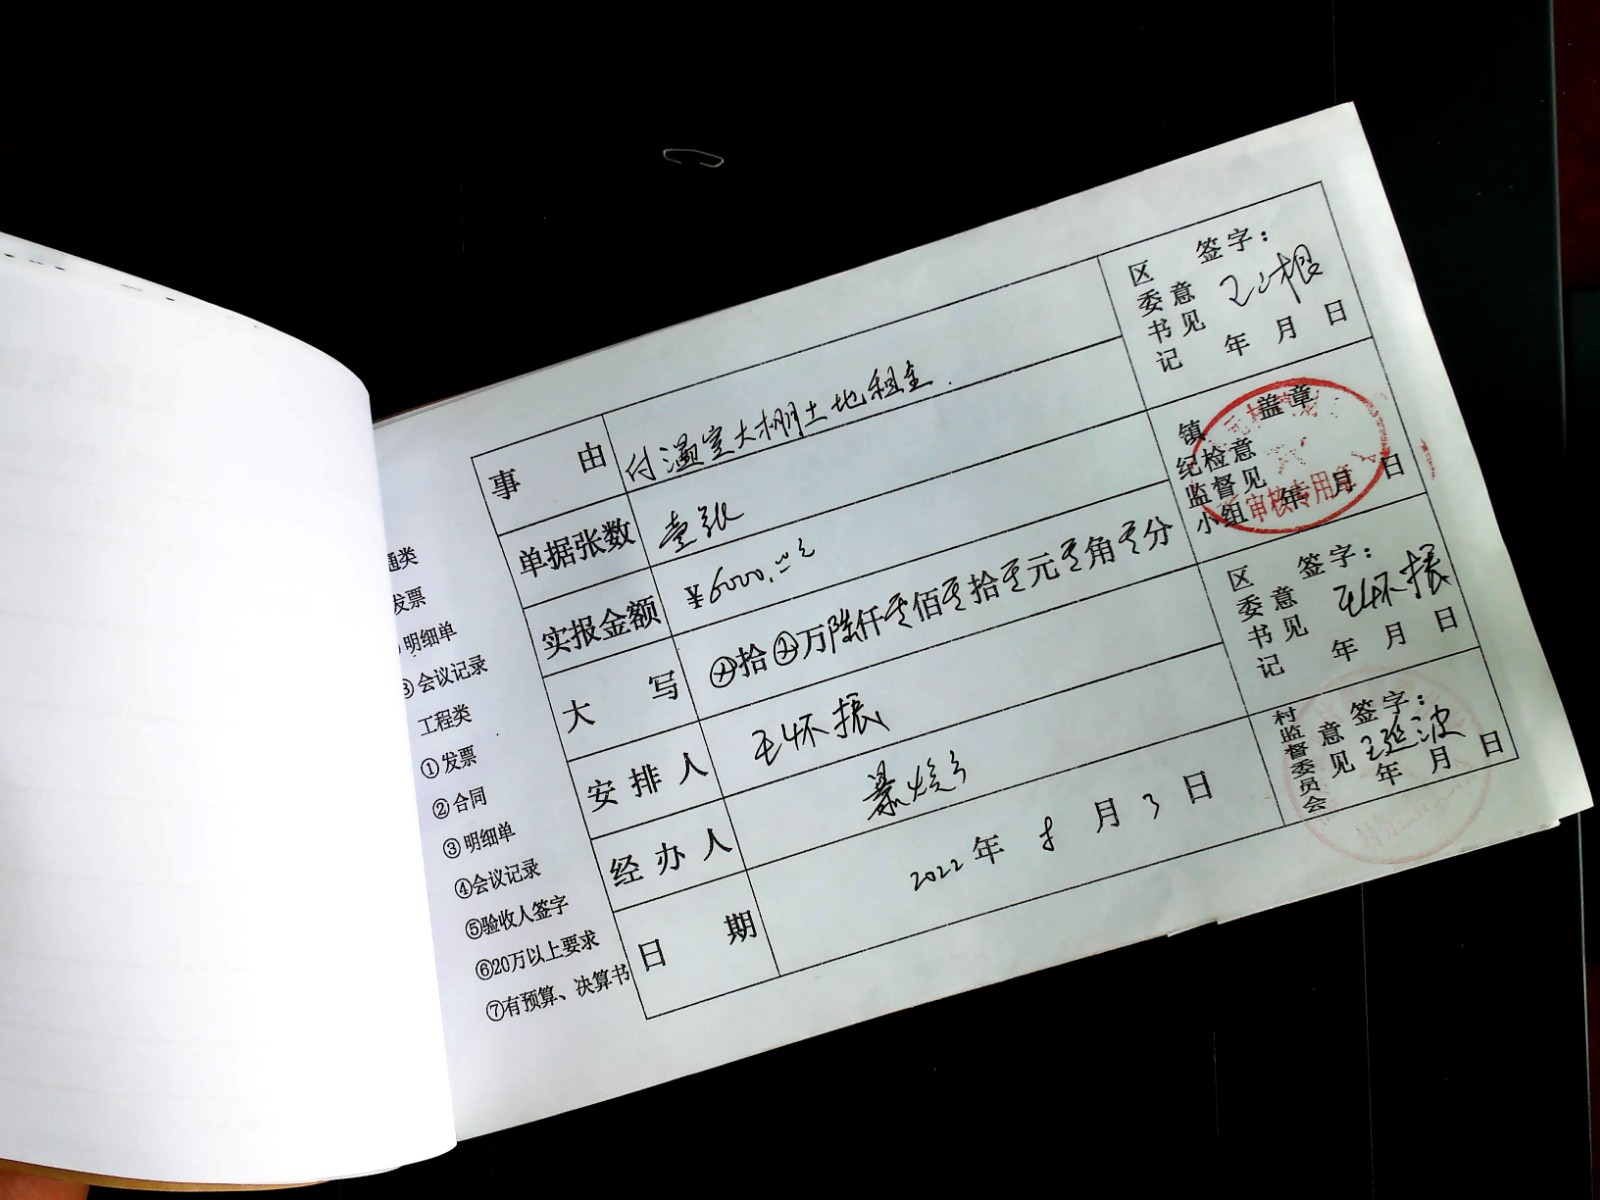 通类
发票
明细单
③会议记录
工程类
①发票
②合同
③明细单
④会议记录
⑤验收人签字
⑥20万以上要求
⑦有预算、决算书
事由 付温室大棚土地租金.
单据张数 壹张
实报金额 ¥6000.00元
大写 ⊕拾⊕万陆仟零佰零拾零元零角零分
安排人 王怀振
经办人
日期 2022年 8月3日
区委书记意见 签字:
年月日
镇纪检监督小组意见 盖章
年月日
审核专用章
区委书记意见 签字: 王怀振
年月日
村监督委员会意见 签字: 王延波
年月日